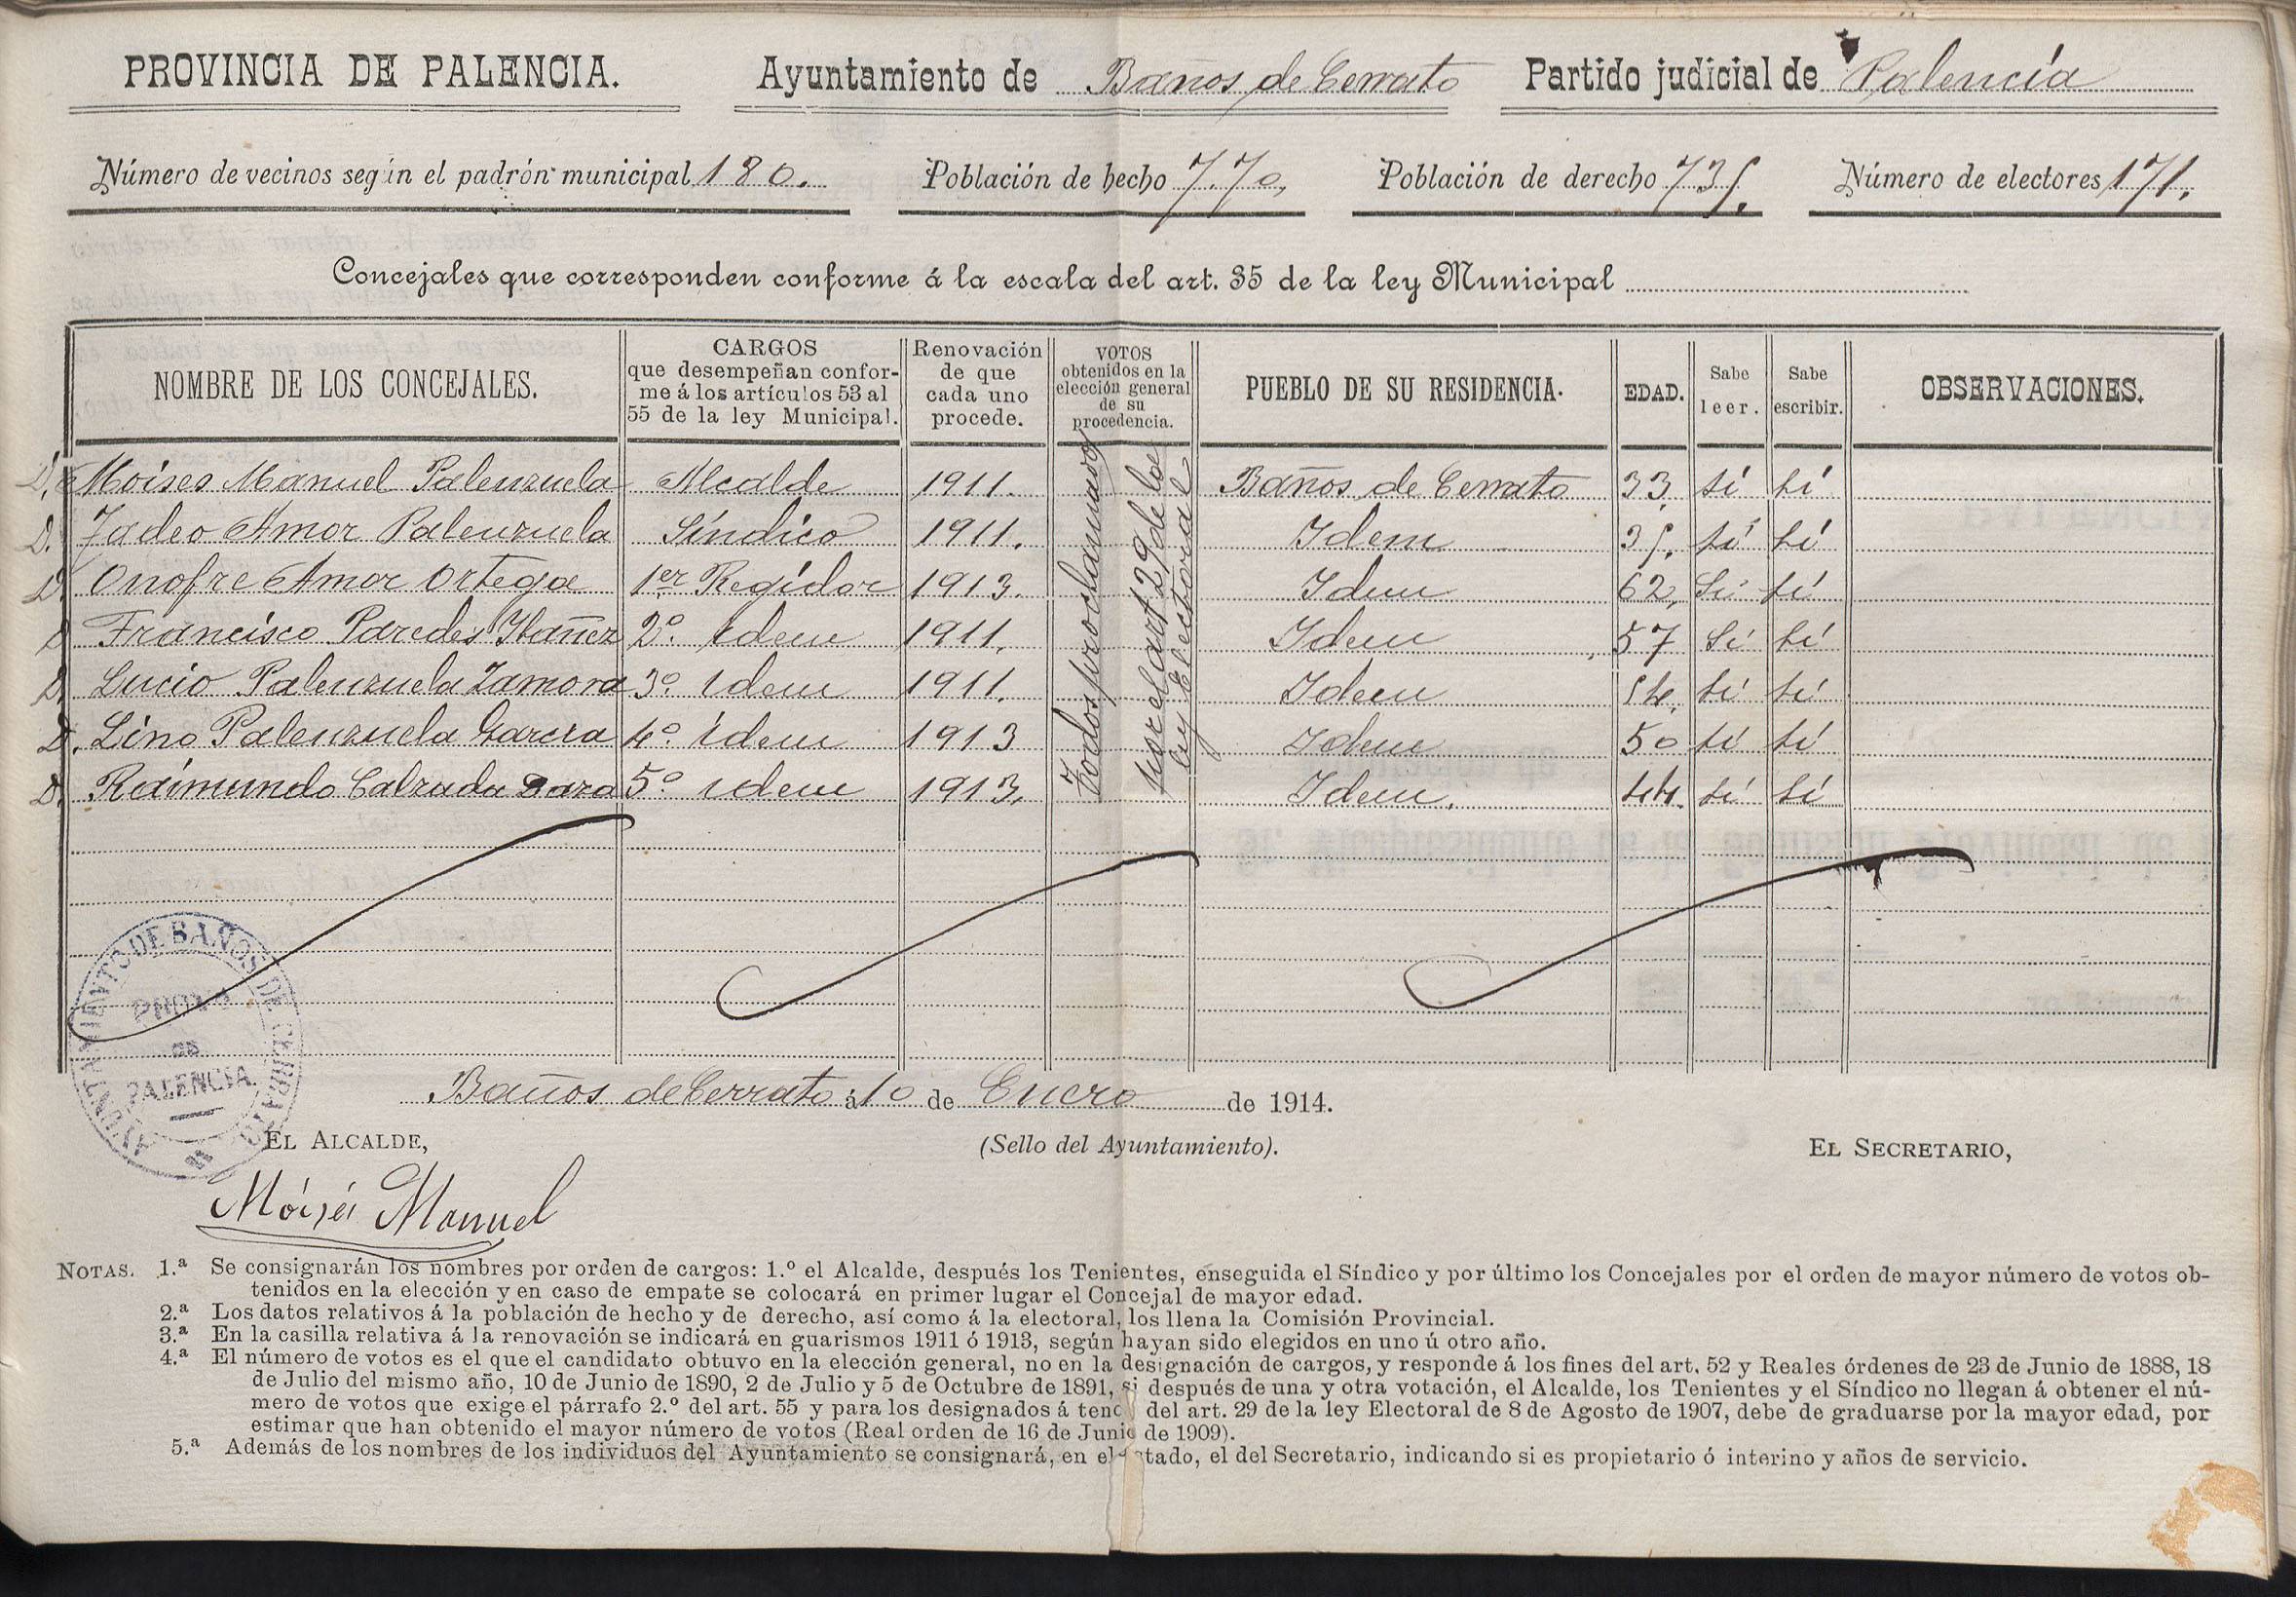 PROVINCIA DE PALENCIA. Ayuntamiento de Baños de Cerrato Partido judicial de Palencia
Número de vecinos según el padrón municipal 180. Población de hecho 770, Población de derecho 735. Número de electores 171.
Concejales que corresponden conforme á la escala del art. 35 de la ley Municipal
NOMBRE DE LOS CONCEJALES.
CARGOS
que desempeñan confor-
me á los artículos 53 al
55 de la ley Municipal.
Renovación
de que
cada uno
procede.
VOTOS
obtenidos en la
elección general
de su
procedencia.
PUEBLO DE SU RESIDENCIA.
EDAD.
Sabe
leer.
Sabe
escribir.
OBSERVACIONES.
D. Moises Manuel Palenzuela Alcalde 1911. Baños de Cerrato 33. sí sí
D. Tadeo Amor Palenzuela Síndico 1911. Idem 35. sí sí
D. Onofre Amor Ortega 1er Regidor 1913. Idem 62, Sí sí
D. Francisco Paredes Ibañez 2º. idem 1911. Idem 57 Sí sí
D. Lucio Palenzuela Zamora 3º. idem 1911. Idem 54. sí sí
D. Lino Palenzuela Garcia 4º. idem 1913 Idem 50 sí sí
D. Raimundo Calzada Daza 5º idem 1913. Idem. 44. sí sí
Todos proclamados
por el art 29 de la
ley Electoral
Baños de Cerrato á 10 de Enero de 1914.
AYUNTAMIENTO DE BAÑOS DE CERRATO
PROVª
DE
PALENCIA.
EL ALCALDE, (Sello del Ayuntamiento). EL SECRETARIO,
Móisés Manuel
NOTAS. 1.ª Se consignarán los nombres por orden de cargos: 1.º el Alcalde, después los Tenientes, enseguida el Síndico y por último los Concejales por el orden de mayor número de votos ob-
tenidos en la elección y en caso de empate se colocará en primer lugar el Concejal de mayor edad.
2.ª Los datos relativos á la población de hecho y de derecho, así como á la electoral, los llena la Comisión Provincial.
3.ª En la casilla relativa á la renovación se indicará en guarismos 1911 ó 1913, según hayan sido elegidos en uno ú otro año.
4.ª El número de votos es el que el candidato obtuvo en la elección general, no en la designación de cargos, y responde á los fines del art. 52 y Reales órdenes de 23 de Junio de 1888, 18
de Julio del mismo año, 10 de Junio de 1890, 2 de Julio y 5 de Octubre de 1891, si después de una y otra votación, el Alcalde, los Tenientes y el Síndico no llegan á obtener el nú-
mero de votos que exige el párrafo 2.º del art. 55 y para los designados á teno del art. 29 de la ley Electoral de 8 de Agosto de 1907, debe de graduarse por la mayor edad, por
estimar que han obtenido el mayor número de votos (Real orden de 16 de Junio de 1909).
5.ª Además de los nombres de los individuos del Ayuntamiento se consignará, en el estado, el del Secretario, indicando si es propietario ó interino y años de servicio.